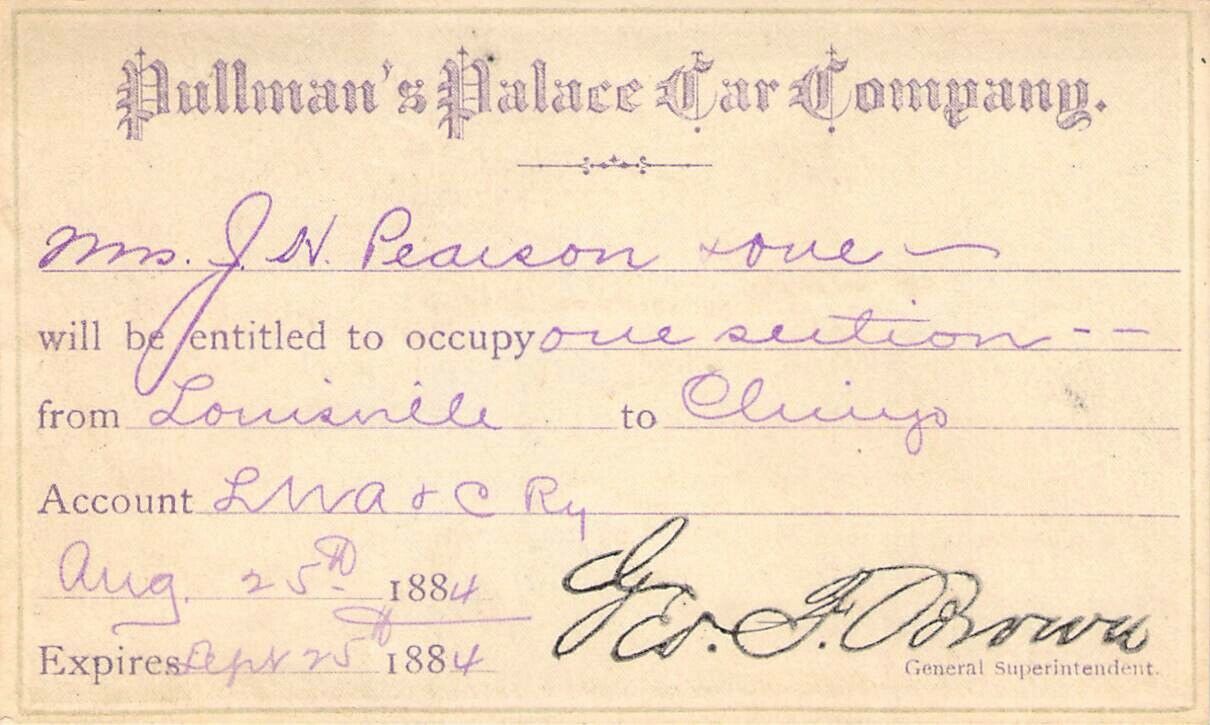 Pullman's Palace Car Company.
Mrs. J. H. Pearson & one
will be entitled to occupy one section --
from Louisville to Chicago
Account L N A & C Ry
Aug. 25th 1884
Expires Sept 25th 1884
Geo. F. Brown
General Superintendent.